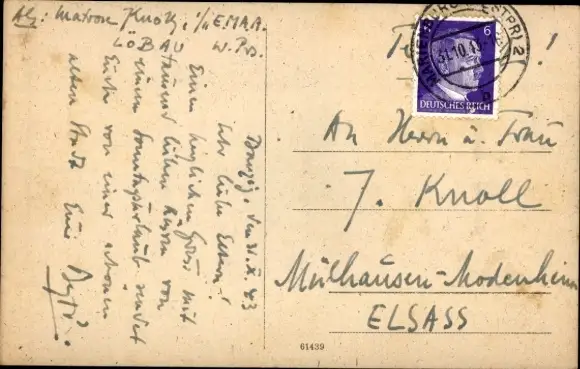 Abs: Matrose Knoll, 1/ E.M.A.A.
LÖBAU W. Prs.
Danzig, den 31. X. 43
Ihr lieben Eltern!
Einen herzlichen Gruss mit
tausend lieben Küssen von
einem Sonntagsurlaub sendet
Euch von einer schönen
alten Stadt Euer
MARIENBURG (WESTPR) 2
31.10.43
6
DEUTSCHES REICH
An Herrn u. Frau
J. Knoll
Mülhausen-Modenheim
ELSASS
61439